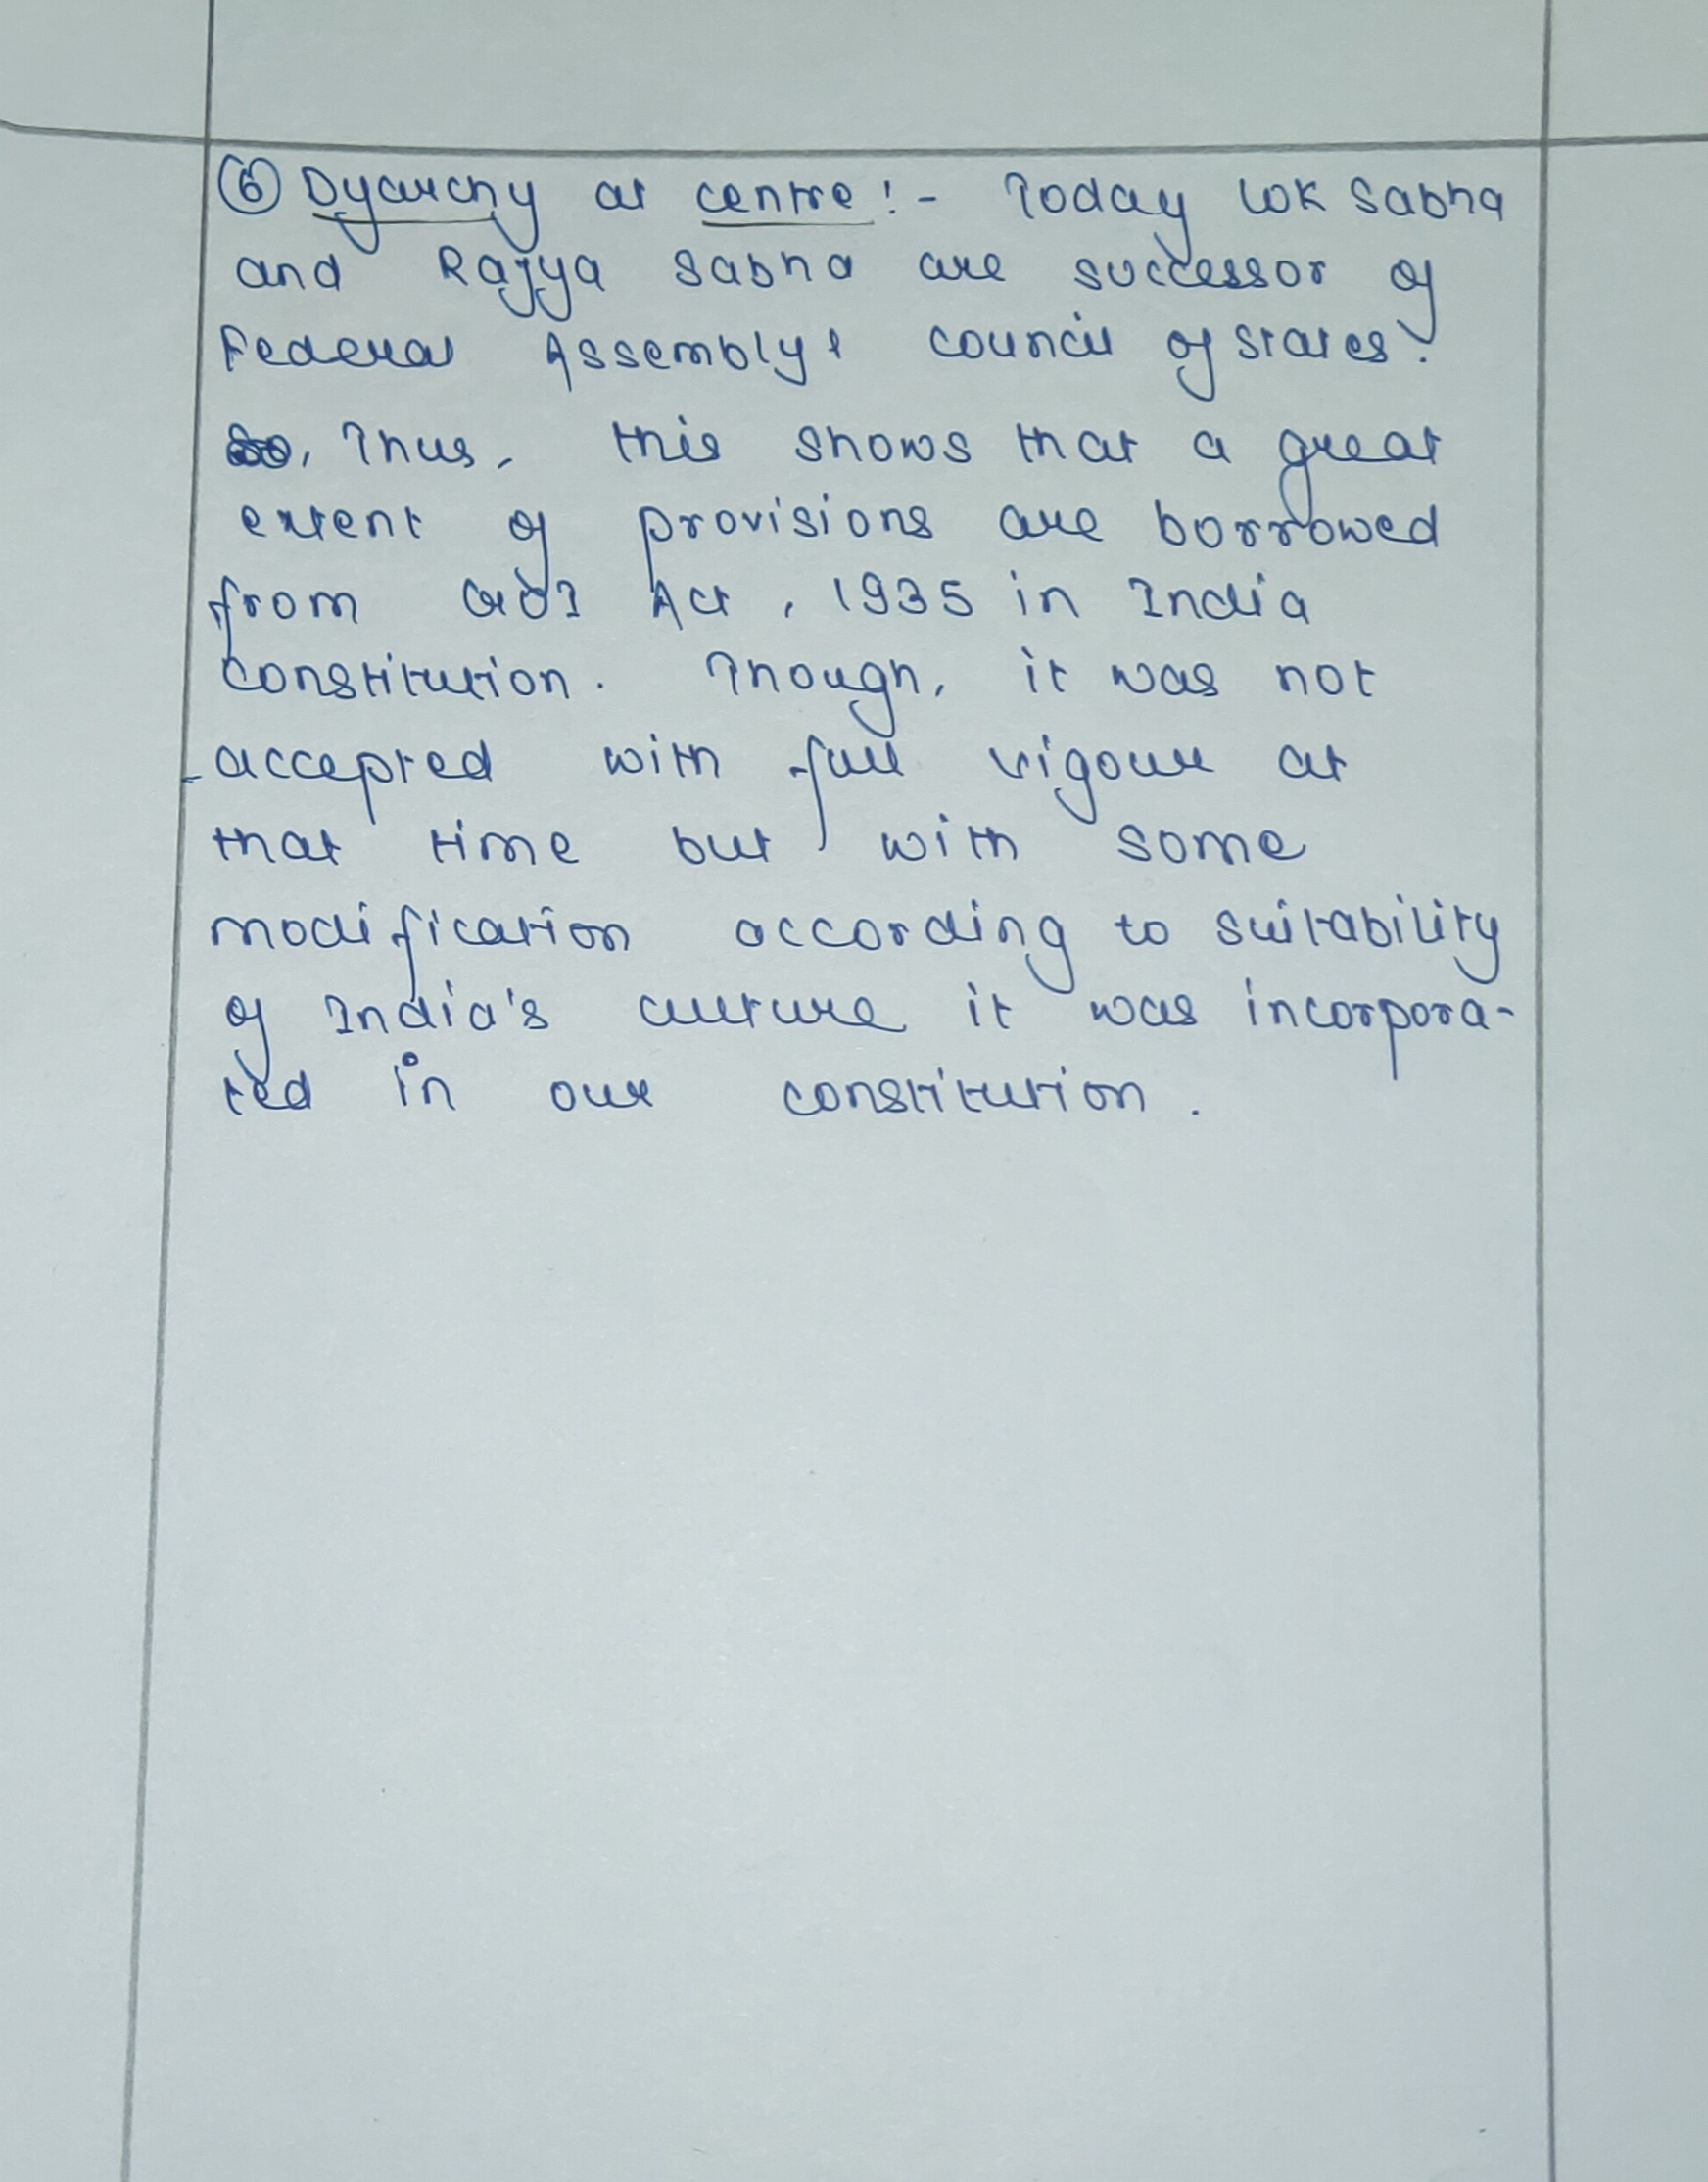 ⑥ Dyarchy at centre :- Today Lok Sabha
and Rajya Sabha are successor of
Federal Assembly & council of states.
So, Thus, this shows that a great
extent of provisions are borrowed
from GOI Act, 1935 in India
constitution. Though, it was not
accepted with full vigour at
that time but with some
modification according to suitability
of India's culture it was incorpora-
ted in our constitution.